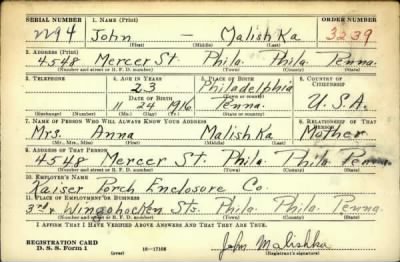 SERIAL NUMBER 1. NAME (Print) ORDER NUMBER
John — Malishka 3239
(First) (Middle) (Last)
2. ADDRESS (Print)
4548 Mercer St. Phila. Phila. Penna.
(Number and street or R. F. D. number) (Town) (County) (State)
3. TELEPHONE 4. AGE IN YEARS 5. PLACE OF BIRTH 6. COUNTRY OF CITIZENSHIP
23 Philadelphia
DATE OF BIRTH (Town or county)
11 24 1916 Penna. U.S.A.
(Exchange) (Number) (Mo.) (Day) (Yr.) (State or country)
7. NAME OF PERSON WHO WILL ALWAYS KNOW YOUR ADDRESS 8. RELATIONSHIP OF THAT PERSON
Mrs. Anna Malishka Mother
(Mr., Mrs., Miss) (First) (Middle) (Last)
9. ADDRESS OF THAT PERSON
4548 Mercer St. Phila. Phila. Penna.
(Number and street or R. F. D. number) (Town) (County) (State)
10. EMPLOYER'S NAME
Kaiser Porch Enclosure Co.
11. PLACE OF EMPLOYMENT OR BUSINESS
3rd & Wingohocken Sts. Phila. Phila. Penna.
(Number and street or R. F. D. number) (Town) (County) (State)
I AFFIRM THAT I HAVE VERIFIED ABOVE ANSWERS AND THAT THEY ARE TRUE.
REGISTRATION CARD
D. S. S. Form 1 (over) 16—17105 John Malishka
(Registrant's signature)